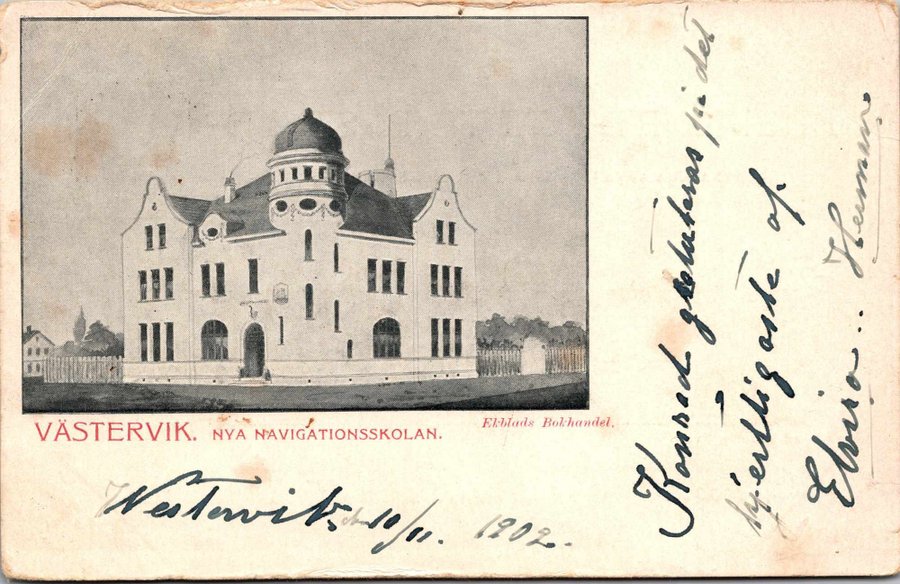 VÄSTERVIK. NYA NAVIGATIONSSKOLAN.
Ekblads Bokhandel.
Westervik, d. 10/11. 1902.
Konrad gratuleras på det
hjertligaste af
Elvira .. Herman